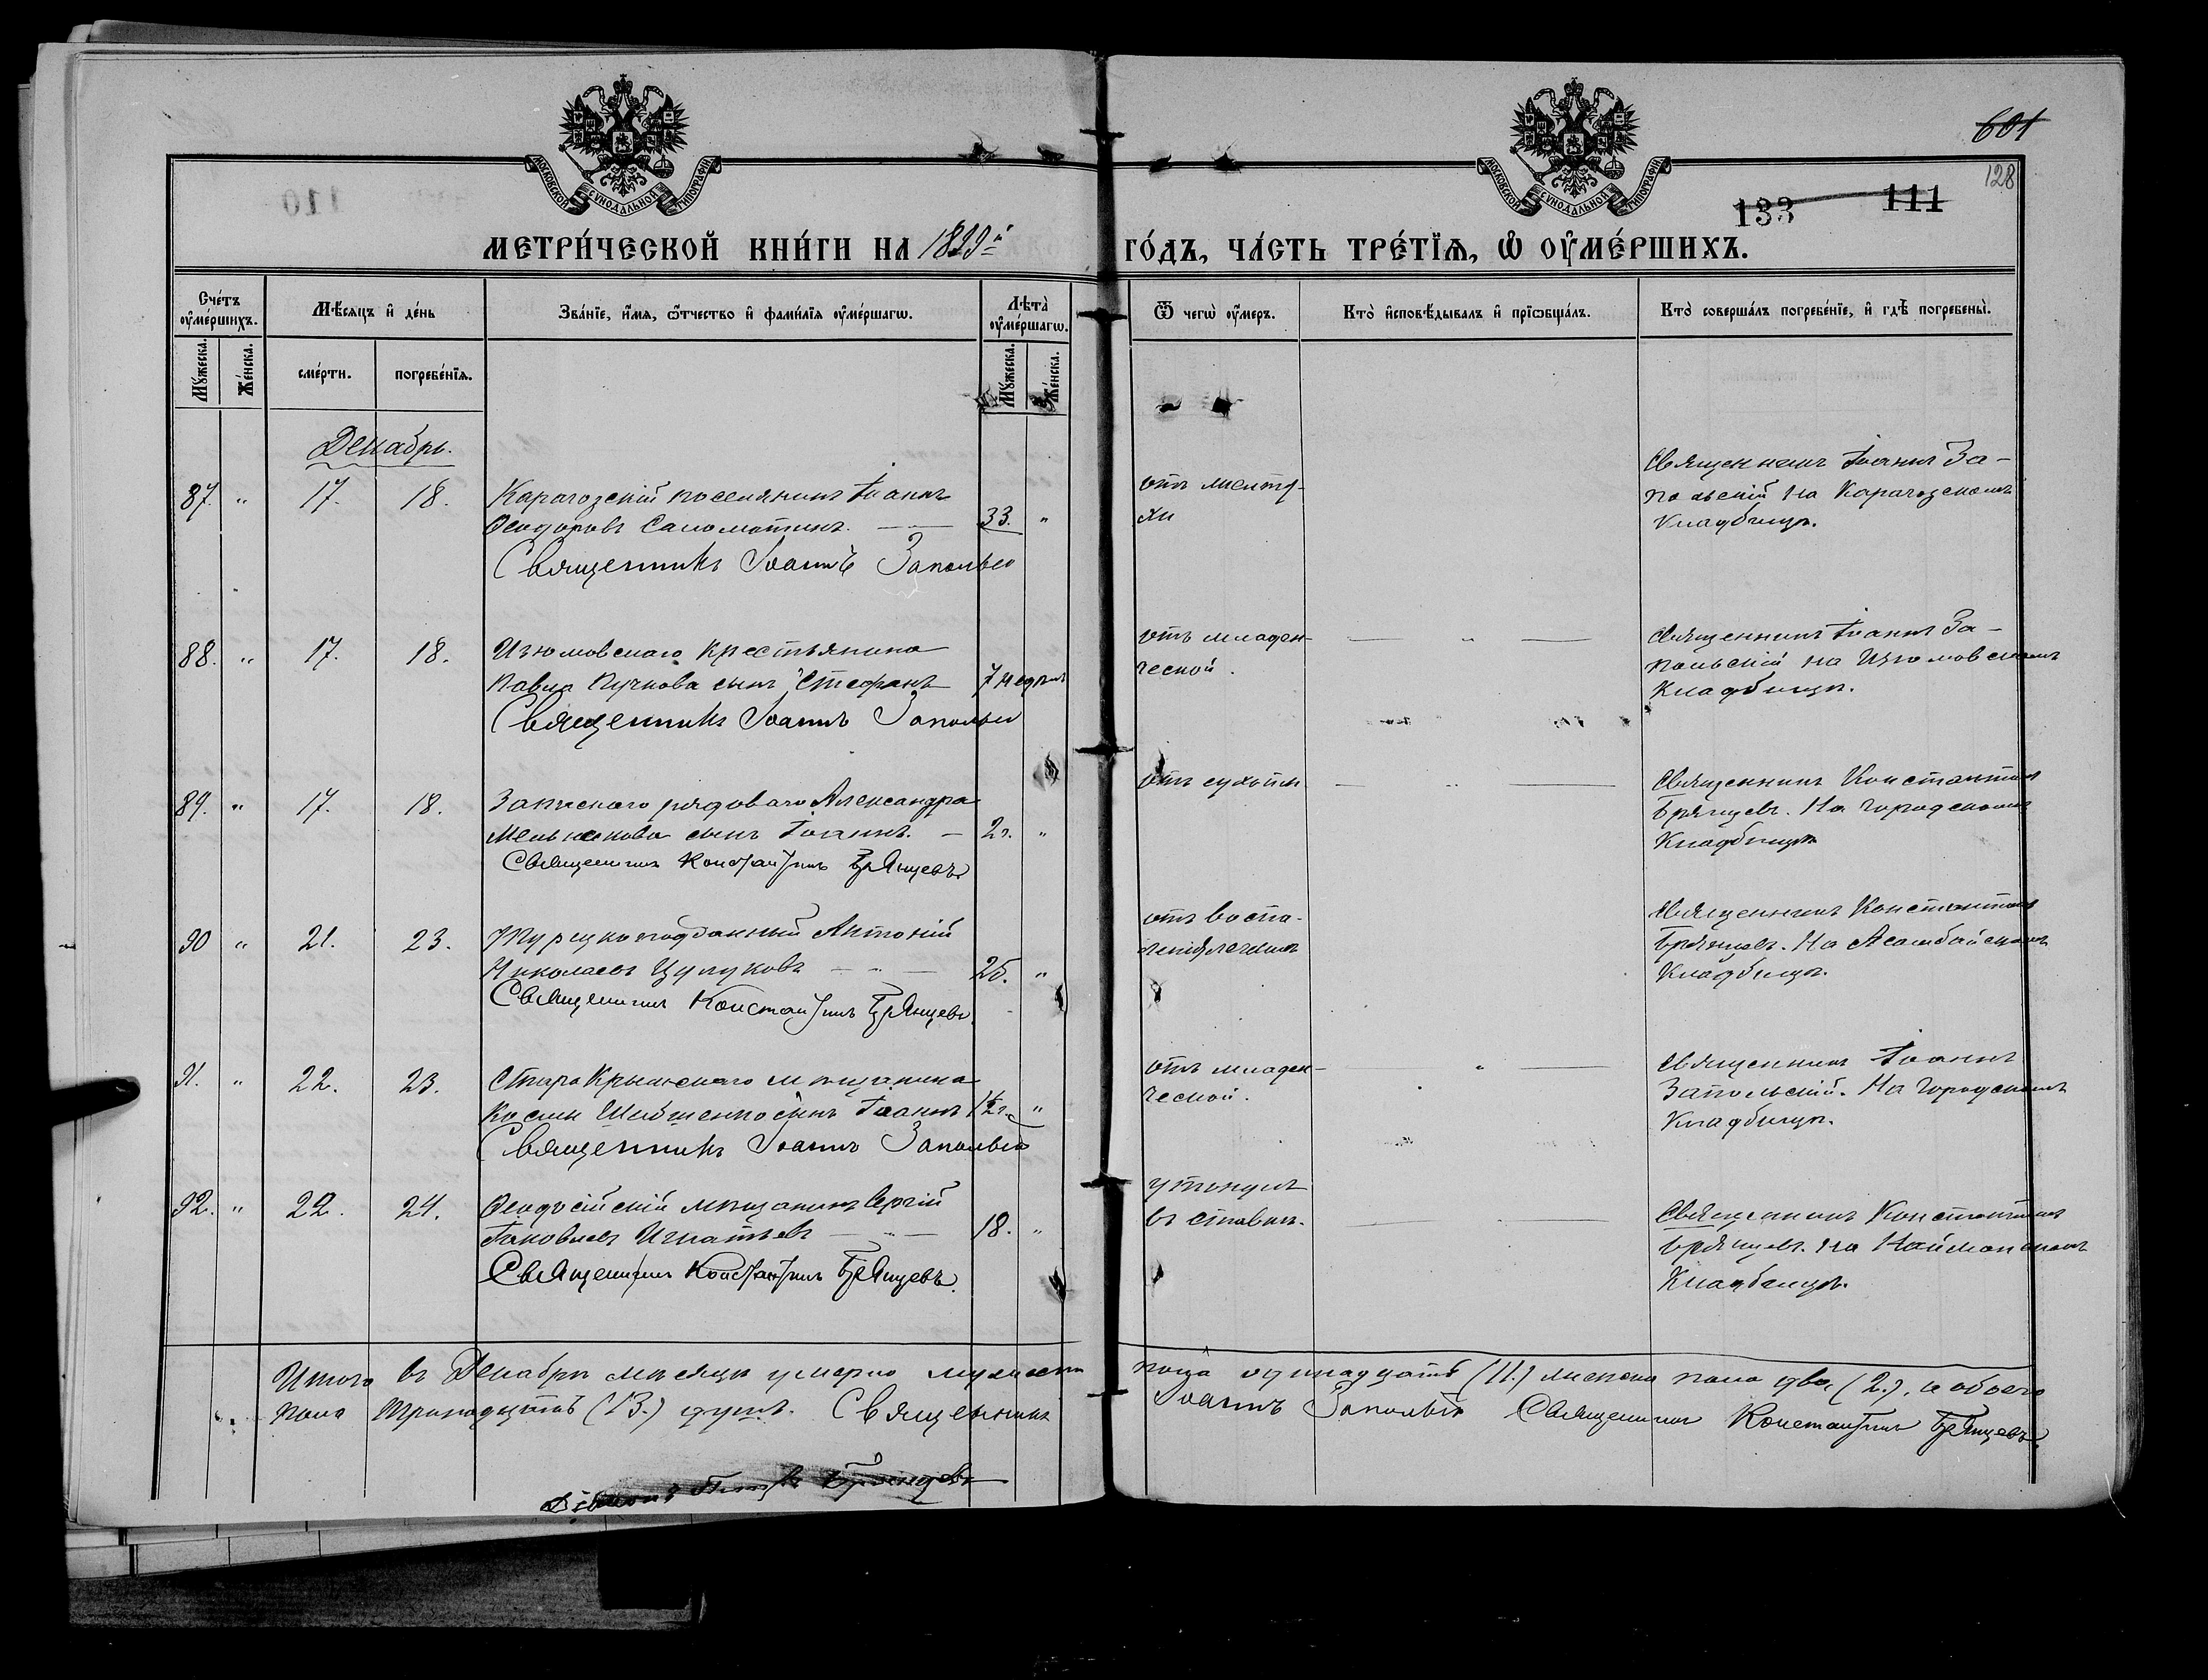 601
128
133 111
МОСКОВСКОЙ СѴНОДАЛЬНОЙ ТИПОГРАФІИ
МОСКОВСКОЙ СѴНОДАЛЬНОЙ ТИПОГРАФІИ
МЕТРИ́ЧЕСКОЙ КНИ́ГИ НА 1899й ГО́ДЪ, ЧА́СТЬ ТРЕ́ТІѦ, Ѡ ОУ҆МЕ́РШИХЪ.
Сче́тъ оу҆ме́ршихъ.
Мѣ́сяцъ и҆ де́нь
Зва́нїе, и҆́мѧ, ѻ҆́тчество и҆ фами́лїѧ оу҆ме́ршагѡ.
Лѣ́та оу҆ме́ршагѡ.
Ѿ чегѡ̀ оу҆́меръ.
Кто̀ и҆сповѣ́дывалъ и҆ прїѡбща́лъ.
Кто̀ соверша́лъ погребе́нїе, и҆ гдѣ̀ погребены̀.
Мꙋ́жеска.
Же́нска.
сме́рти.
погребе́нїѧ.
Мꙋ́жеска.
Же́нска.
Декабрь.
87. " 17. 18. Карагозскій поселянинъ Іоаннъ
Ѳеодоровъ Саломатинъ. 33. "
Священникъ Іоаннъ Запольскій
отъ чахотки
Священникъ Іоаннъ За-
польскій на Карагозскомъ
Кладбищѣ.
88. " 17. 18. Изюмовскаго Крестьянина
Павла Пучкова сынъ Стефанъ 7 недѣль
Священникъ Іоаннъ Запольскій
отъ младен-
ческой.
Священникъ Іоаннъ За-
польскій на Изюмовскомъ
Кладбищѣ.
89. " 17. 18. Запаснаго рядоваго Александра
Мельникова сынъ Іоаннъ. 2г. "
Священникъ Константинъ Брянцевъ
отъ сухоты
Священникъ Константинъ
Брянцевъ. На городскомъ
Кладбищѣ
90 " 21. 23. Турецкоподданный Антоній
Николаевъ Цулуковъ 25. "
Священникъ Константинъ Брянцевъ.
отъ воспа-
Священникъ Константинъ
Брянцевъ. На Асамбайскомъ
Кладбищѣ.
91. " 22. 23. СтароКрымскаго мѣщанина
Космы сынъ Іоаннъ 1½г. "
Священникъ Іоаннъ Запольскій
отъ младен-
ческой.
Священникъ Іоаннъ
Запольскій. На Городскомъ
Кладбищѣ.
92. " 22. 24. Ѳеодосійскій мѣщанинъ Сергій
Іаковлевъ Игнатьевъ 18. "
Священникъ Константинъ Брянцевъ.
утонулъ
въ ставкѣ.
Священникъ Константинъ
Брянцевъ. На Найманскомъ
Кладбищѣ.
Итого въ Декабрѣ мѣсяцѣ умерло мужеска пола одинадцать (11.) женска пола два (2.), а обоего
пола тринадцать (13.) душъ. Священникъ Іоаннъ Запольскій Священникъ Константинъ Брянцевъ.
Діаконъ Брянцевъ